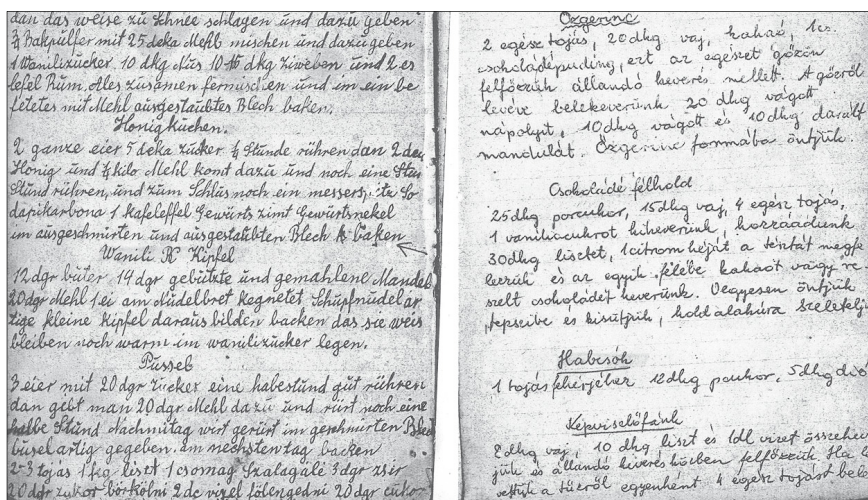 dan das weise zu Schnee schlagen und dazu geben
Bakpulfer mit 25 deka Mehl mischen und dazugeben
1 Wanilizucker. 10 dkg Nus 10 dkg Ziweben und 2 es
lefel Rum. Ales zusamen fermischen und im ein be
fetetes mit Mehl ausgestaubtes Blech baken.
Honigkuchen.
2 ganze eier 5 deka zucker ¼ Stunde rühren dan 2 dec
Honig und ¼ kilo Mehl komt dazu und noch eine
Stund rühren, und zum Schlus noch ein messers So
dapikarbona 1 kafeleffel Gewürts zimt Gewürtsnekel
im ausgeschmirten und ausgestaubten Blech baken
Wanili Kipfel
12 dgr buter 14 dgr gebutzte und gemahlene Mandel
20 dgr Mehl 1 ei am Nudelbret kegnetet Schupfnudelar
tige kleine Kipfel daraus bilden backen das sie weis
bleiben noch warm im wanilizücker legen.
Pusseb
3 eier mit 20 dgr zucker eine habestund gut rühren
dan gebt man 20 dgr Mehl dazu und rürt noch eine
halbe Stund Nachmitag wirt gerürt im geschmirten
büselartig gegeben. am nechsten tag backen
2-3 tojás 1 kg liszt 1 csomag Szalagale 3 dgr zsir
20 dgr zukor börkölni 2 dc vizel fölengedni 20 dgr cukor
Őzgerinc
2 egész tojás, 20 dkg vaj, kakaó, 1 cs.
csokoládépuding, ezt az egészet gőzön
felfőzzük állandó keverés mellett. A gőzről
levéve belekeverünk 20 dkg vágott
nápolyit, 10 dkg vágott és 10 dkg darált
mandulát. Őzgerinc formába öntjük.
Csokoládé félhold
25 dkg porcukor, 15 dkg vaj, 4 egész tojás,
1 vaniliacukrot kikeverünk, hozzáadunk
30 dkg lisztet, 1 citrom héját a tésztát
és az egyik felébe kakaót vagy re
szelt csokoládét keverünk. Vegyesen öntjük
tepsibe és kisütjük, hold alakúra szeleteljü
Habcsók
1 tojás fehérjéhez 12 dkg porcukor, 5 dkg dió
Képviselőfánk
2 dkg vaj, 10 dkg liszt és 1 dl vizet
jük és állandó keverés közben felfőzzük Ha
vettük a tűzről egyenként 4 egész tojást